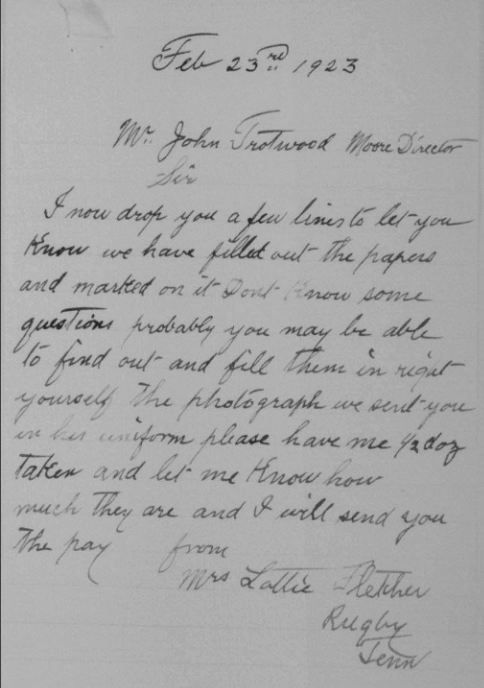 Feb 23rd 1923
Mr. John Trotwood Moore Director
Sir
I now drop you a few lines to let you
Know we have filled out the papers
and marked on it Dont Know some
questions probably you may be able
to find out and fill them in right
yourself the photograph we sent you
in his uniform please have me 1/2 doz
taken and let me Know how
much they are and I will send you
the pay from
Mrs Lottie Fletcher
Rugby
Tenn